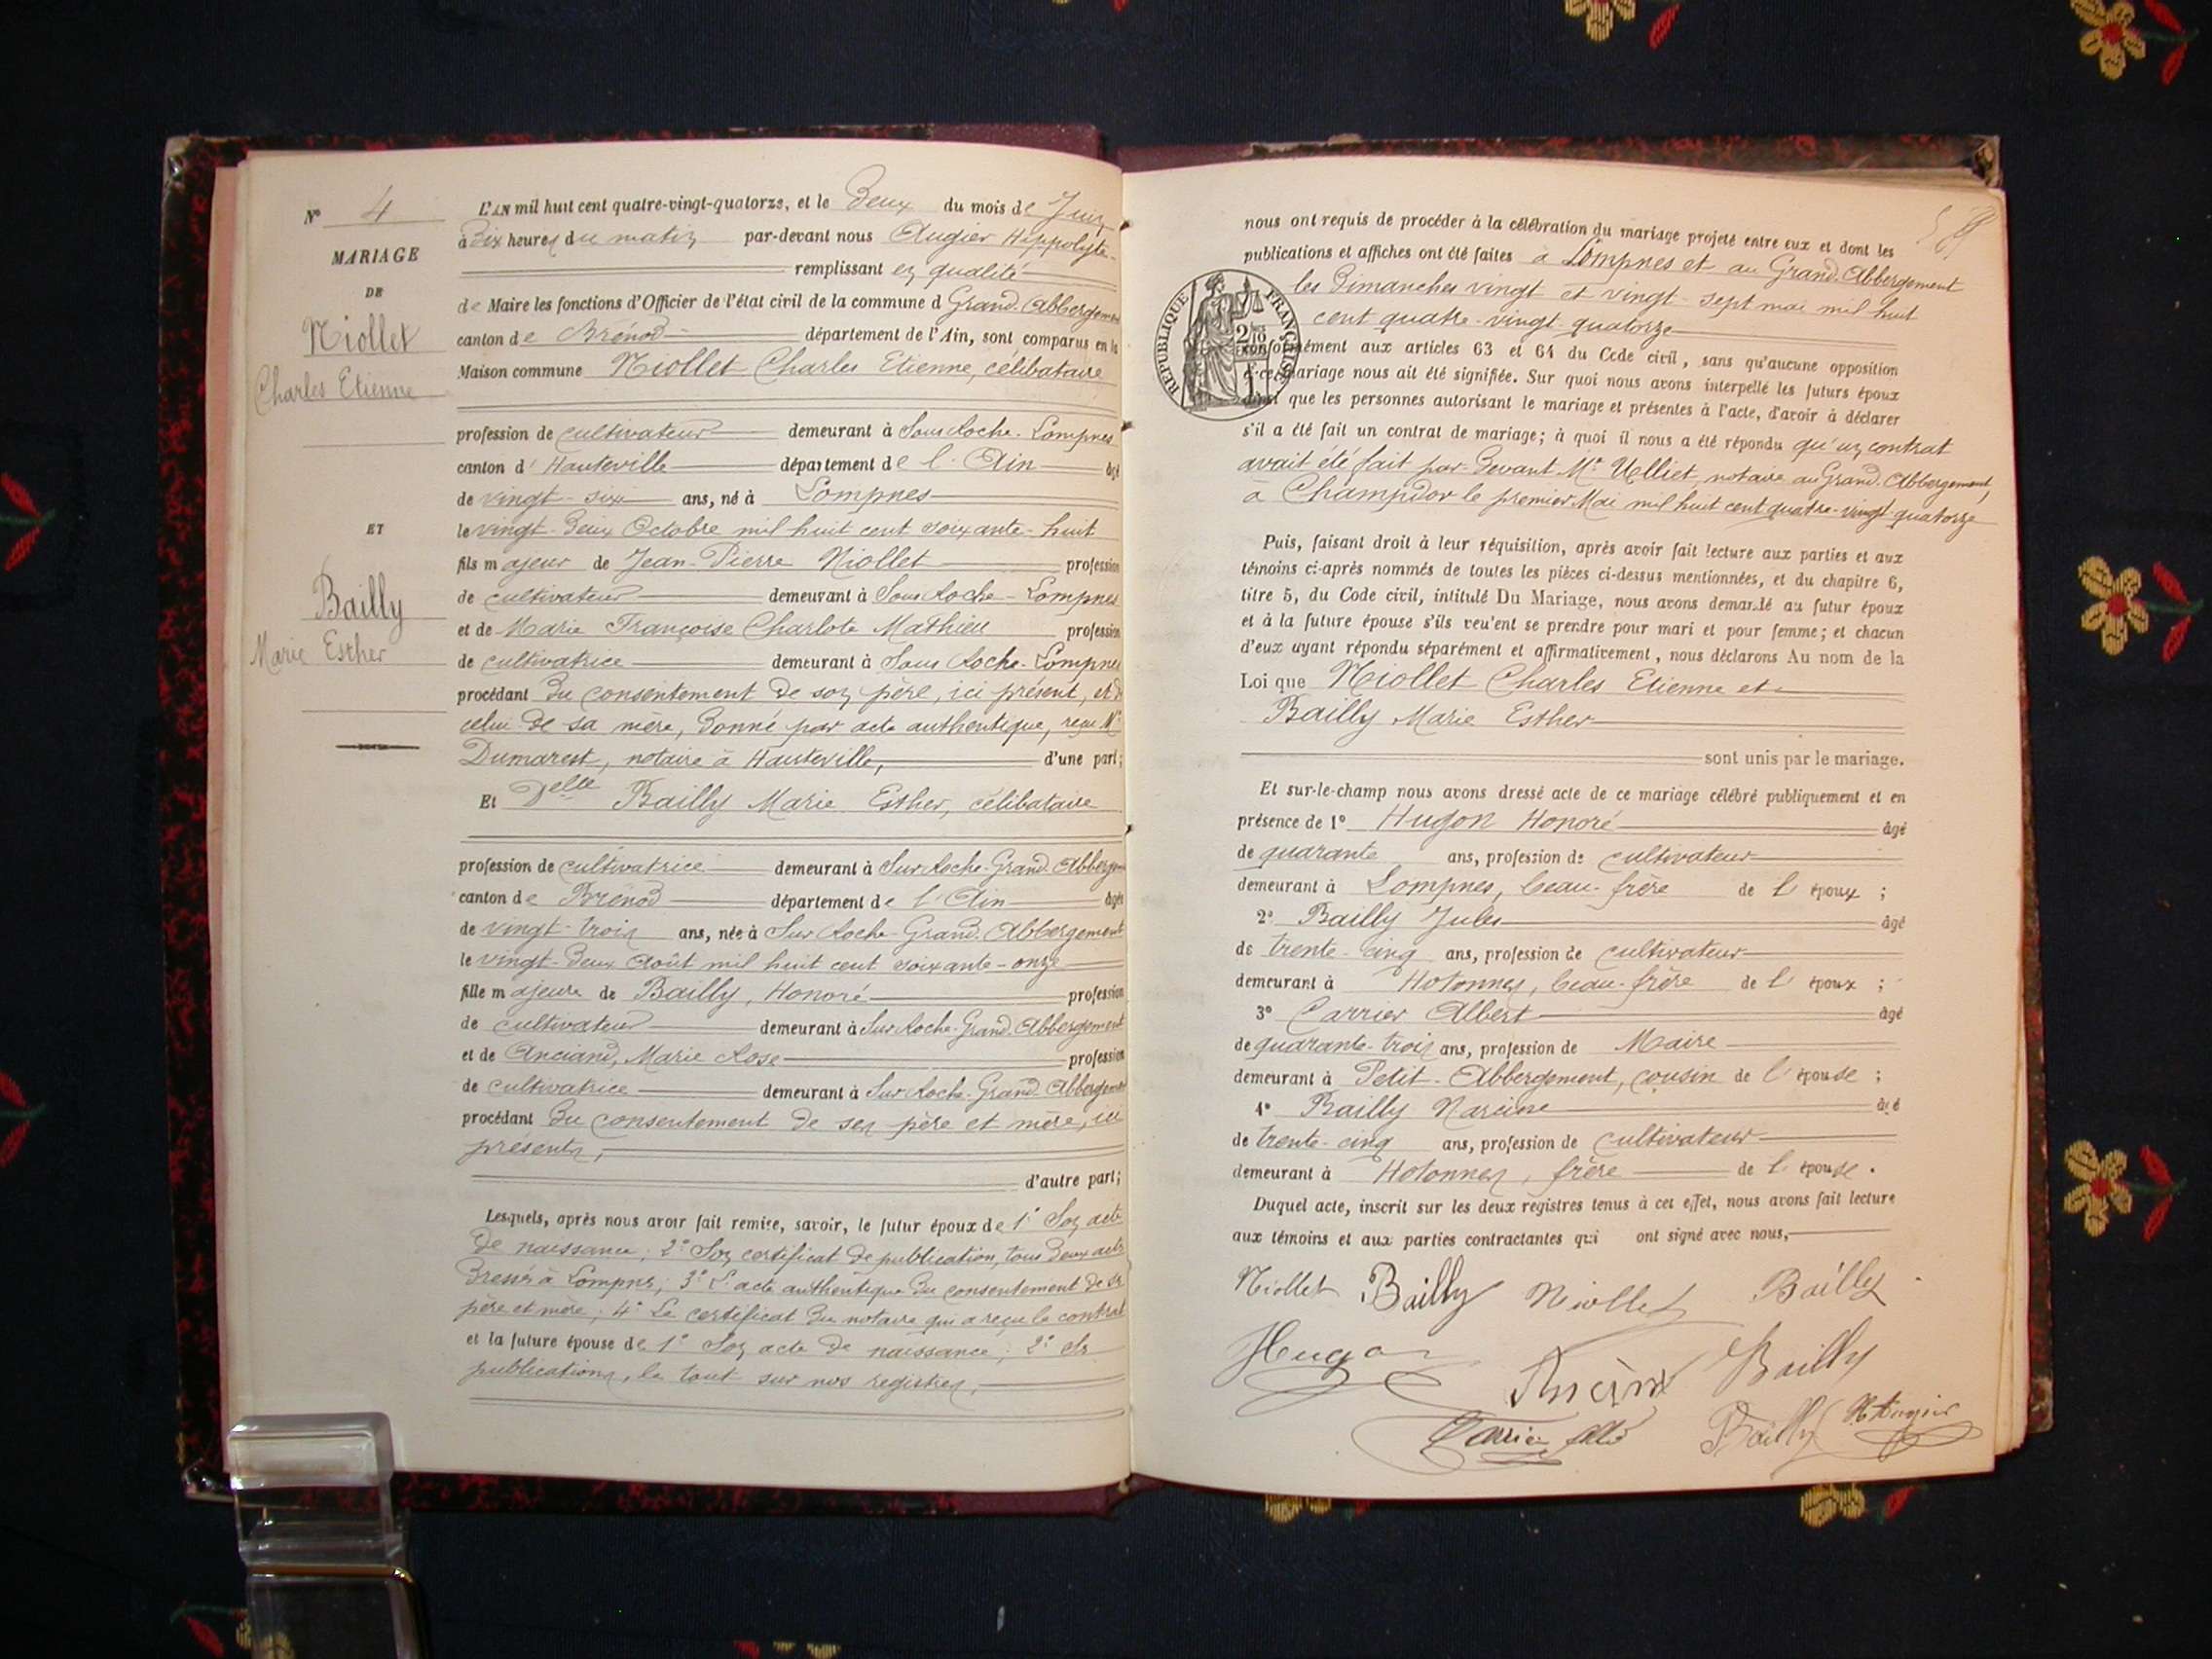 N° 4
MARIAGE
DE
Niollet
Charles Etienne
ET
Bailly
Marie Esther
L'AN mil huit cent quatre-vingt-quatorze, et le Deux du mois de Juin
à Dix heures du matin par-devant nous Augier Hippolyte
remplissant en qualité
de Maire les fonctions d'Officier de l'état civil de la commune d Grand-Abbergement
canton de Brénod département de l'Ain, sont comparus en la
Maison commune Niollet Charles Etienne, célibataire
profession de cultivateur demeurant à Sous Roche-Lompnes
canton d'Hauteville département de l'Ain âgé
de vingt-six ans, né à Lompnes
le vingt-deux Octobre mil huit cent soixante-huit
fils majeur de Jean-Pierre Niollet profession
de cultivateur demeurant à Sous Roche-Lompnes
et de Marie Françoise Charlote Mathieu profession
de cultivatrice demeurant à Sous Roche-Lompnes
procédant Du consentement de son père, ici présent, et d
celui de sa mère, Donné par acte authentique, reçu Me
Dumarest, notaire à Hauteville, d'une part;
Et Delle Bailly Marie Esther, célibataire
profession de cultivatrice demeurant à Sur Roche-Grand-Abbergem
canton de Brénod département de l'Ain âgée
de vingt-trois ans, née à Sur Roche-Grand-Abbergement
le vingt-deux Août mil huit cent soixante-onze
fille majeure de Bailly, Honoré profession
de cultivateur demeurant à Sur Roche-Grand-Abbergement
et de Anciand, Marie Rose profession
de cultivatrice demeurant à Sur Roche-Grand-Abbergement
procédant Du consentement de ses père et mère, ici
présents,
d'autre part;
Lesquels, après nous avoir fait remise, savoir, le futur époux de 1° Son acte
de naissance; 2° Son certificat de publication, tous deux acte
Dressés à Lompnes; 3° L'acte authentique du consentement de ses
père et mère; 4° Le certificat du notaire qui a reçu le contrat
et la future épouse de 1° Son acte de naissance; 2° Ses
publications, le tout sur nos registres,
nous ont requis de procéder à la célébration du mariage projeté entre eux et dont les
publications et affiches ont été faites à Lompnes et au Grand-Abbergement
les Dimanches vingt et vingt-sept mai mil huit
cent quatre-vingt-quatorze
RÉPUBLIQUE FRANÇAISE
conformément aux articles 63 et 64 du Code civil, sans qu'aucune opposition
à ce mariage nous ait été signifiée. Sur quoi nous avons interpellé les futurs époux
ainsi que les personnes autorisant le mariage et présentes à l'acte, d'avoir à déclarer
s'il a été fait un contrat de mariage; à quoi il nous a été répondu qu'un contrat
avait été fait par-Devant Me Ulliet, notaire au Grand-Abbergement,
à Champdor le premier Mai mil huit cent quatre-vingt-quatorze
Puis, faisant droit à leur réquisition, après avoir fait lecture aux parties et aux
témoins ci-après nommés de toutes les pièces ci-dessus mentionnées, et du chapitre 6,
titre 5, du Code civil, intitulé Du Mariage, nous avons demandé au futur époux
et à la future épouse s'ils veulent se prendre pour mari et pour femme; et chacun
d'eux ayant répondu séparément et affirmativement, nous déclarons Au nom de la
Loi que Niollet Charles Etienne et
Bailly Marie Esther
sont unis par le mariage.
Et sur-le-champ nous avons dressé acte de ce mariage célébré publiquement et en
présence de 1° Hugon Honoré âgé
de quarante ans, profession de cultivateur
demeurant à Lompnes, beau-frère de l'époux;
2° Bailly Jules âgé
de trente-cinq ans, profession de cultivateur
demeurant à Hotonnes, beau-frère de l'époux;
3° Carrier Albert âgé
de quarante-trois ans, profession de Maire
demeurant à Petit-Abbergement, cousin de l'épouse;
4° Bailly Narcisse âgé
de trente-cinq ans, profession de cultivateur
demeurant à Hotonnes, frère de l'épouse.
Duquel acte, inscrit sur les deux registres tenus à cet effet, nous avons fait lecture
aux témoins et aux parties contractantes qui ont signé avec nous,
Niollet Bailly Niollet Bailly
Hugon Bailly
Carrier Bailly H Augier